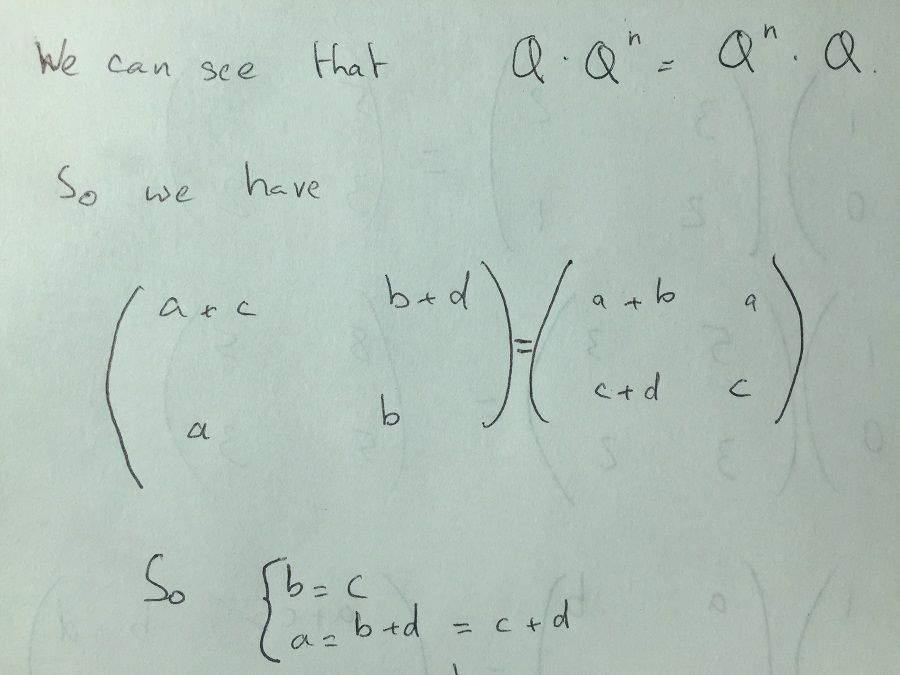 We can see that Q · Qⁿ = Qⁿ · Q.
So we have
( a + c b + d ) = ( a + b a )
( a b ) ( c + d c )
So { b = c
a = b + d = c + d